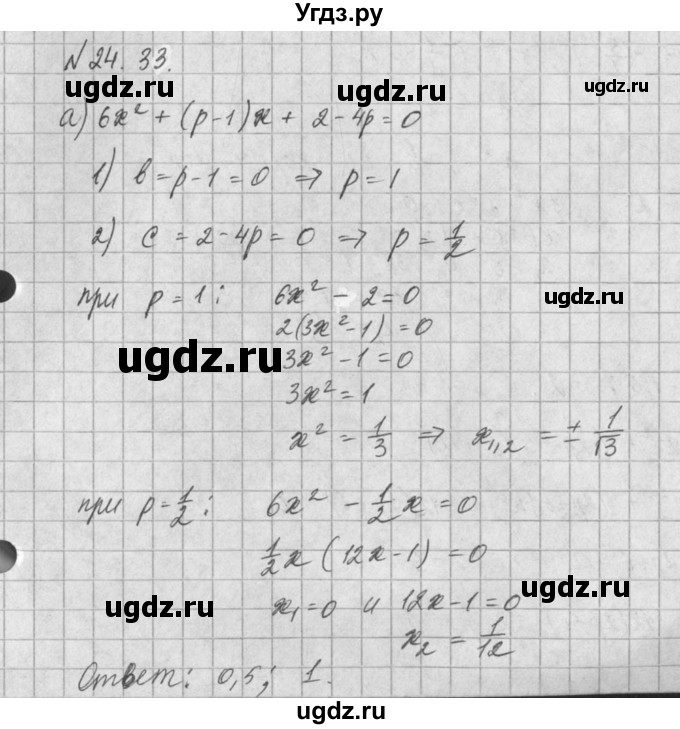 Угдз.ру
№ 24. 33.
ugdz.ru ugdz.ru
а) 6x² + (p-1)x + 2-4p=0
1) b=p-1=0 ⇒ p=1
2) c = 2-4p=0 ⇒ p = 1/2
при p=1: 6x² - 2=0
ugdz.ru
2(3x²-1)=0
ugdz.ru
3x²-1=0
3x²=1
x² = 1/3 ⇒ x₁,₂ = ± 1/√3
при p=1/2: 6x² - 1/2x=0
1/2x (12x-1) = 0
ugdz.ru
x₁=0 и 12x-1=0
ugdz.ru
x₂ = 1/12
Ответ: 0,5; 1.
ugdz.ru